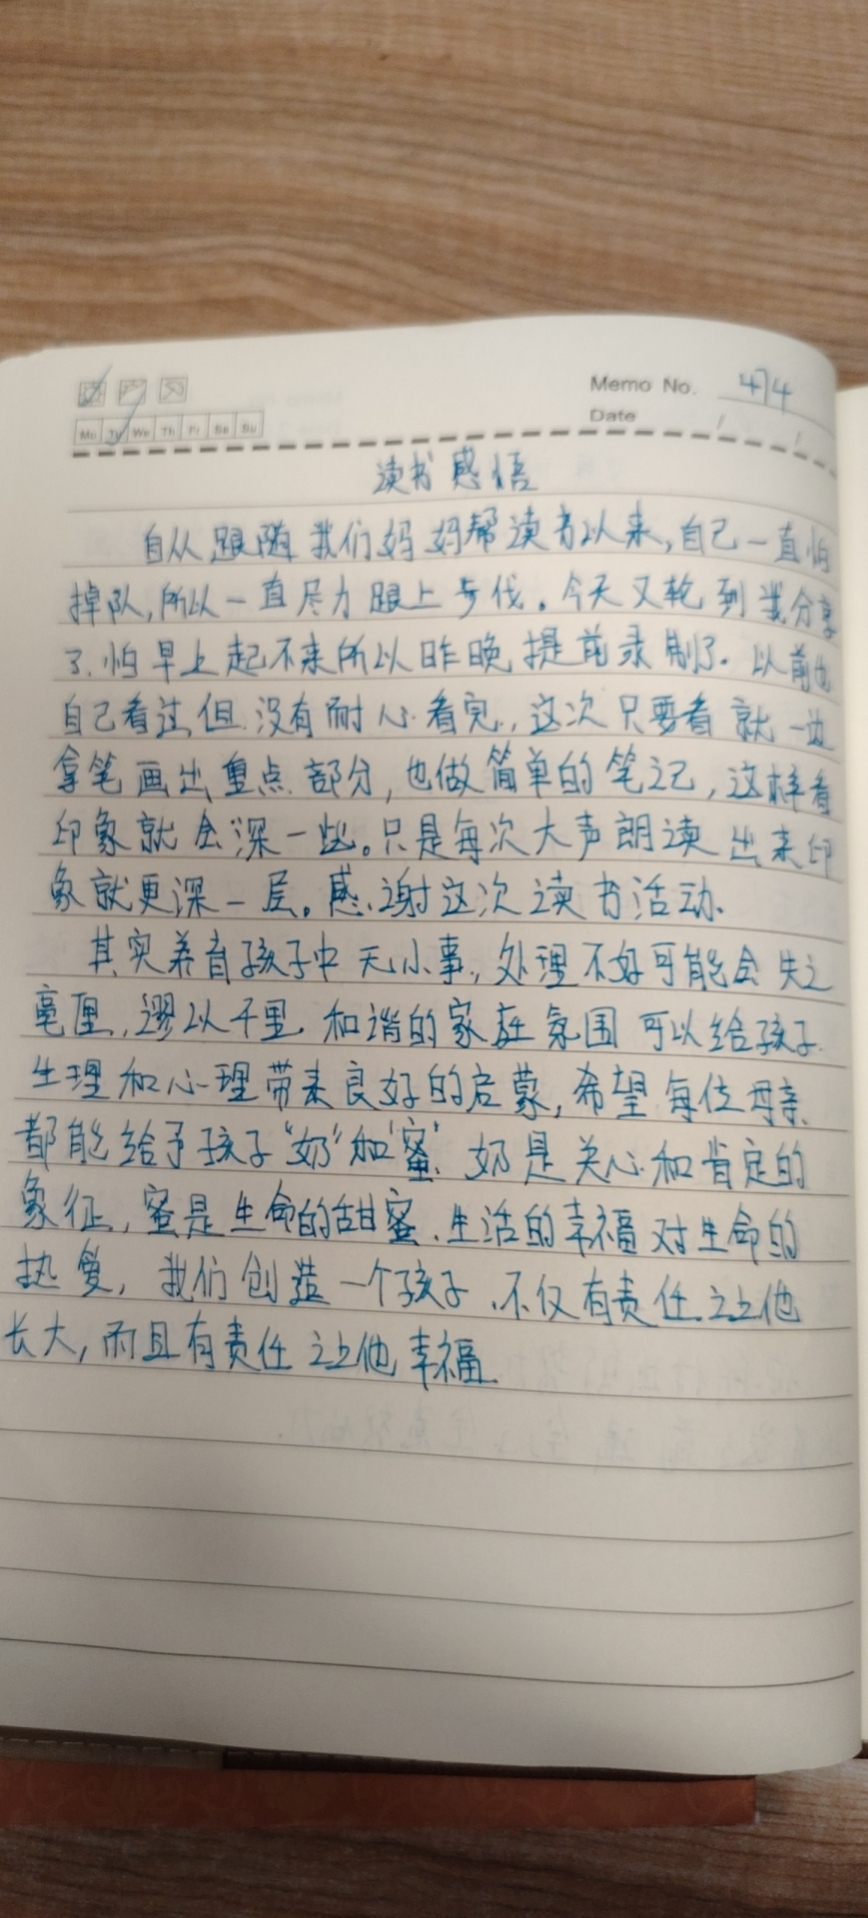 Memo No. 474
Mo Tu We Th Fr Sa Su
Date / /
读书感悟
自从跟随我们妈妈帮读书以来,自己一直怕
掉队,所以一直尽力跟上步伐。今天又轮到我分享
了.怕早上起不来所以昨晚提前录制了.以前也
自己看过但没有耐心看完,这次只要看就一边
拿笔画出重点部分,也做简单的笔记,这样看
印象就会深一些。只是每次大声朗读出来印
象就更深一层。感谢这次读书活动.
其实养育孩子中无小事,处理不好可能会失之
毫厘,谬以千里.和谐的家庭氛围可以给孩子
生理和心理带来良好的启蒙,希望每位母亲
都能给予孩子“奶”和“蜜”奶是关心和肯定的
象征,蜜是生命的甜蜜.生活的幸福对生命的
热爱,我们创造一个孩子.不仅有责任让他
长大,而且有责任让他幸福.